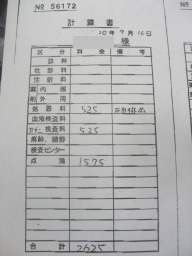 No 56172
計算書
20年9月16日
様
区分 料金 備考
診料
往診料
注射料
薬内渡
剤外用
処置料 525
血液検査料
525
麻酔、鎮静
検査センター
点滴 1575
合計 2625